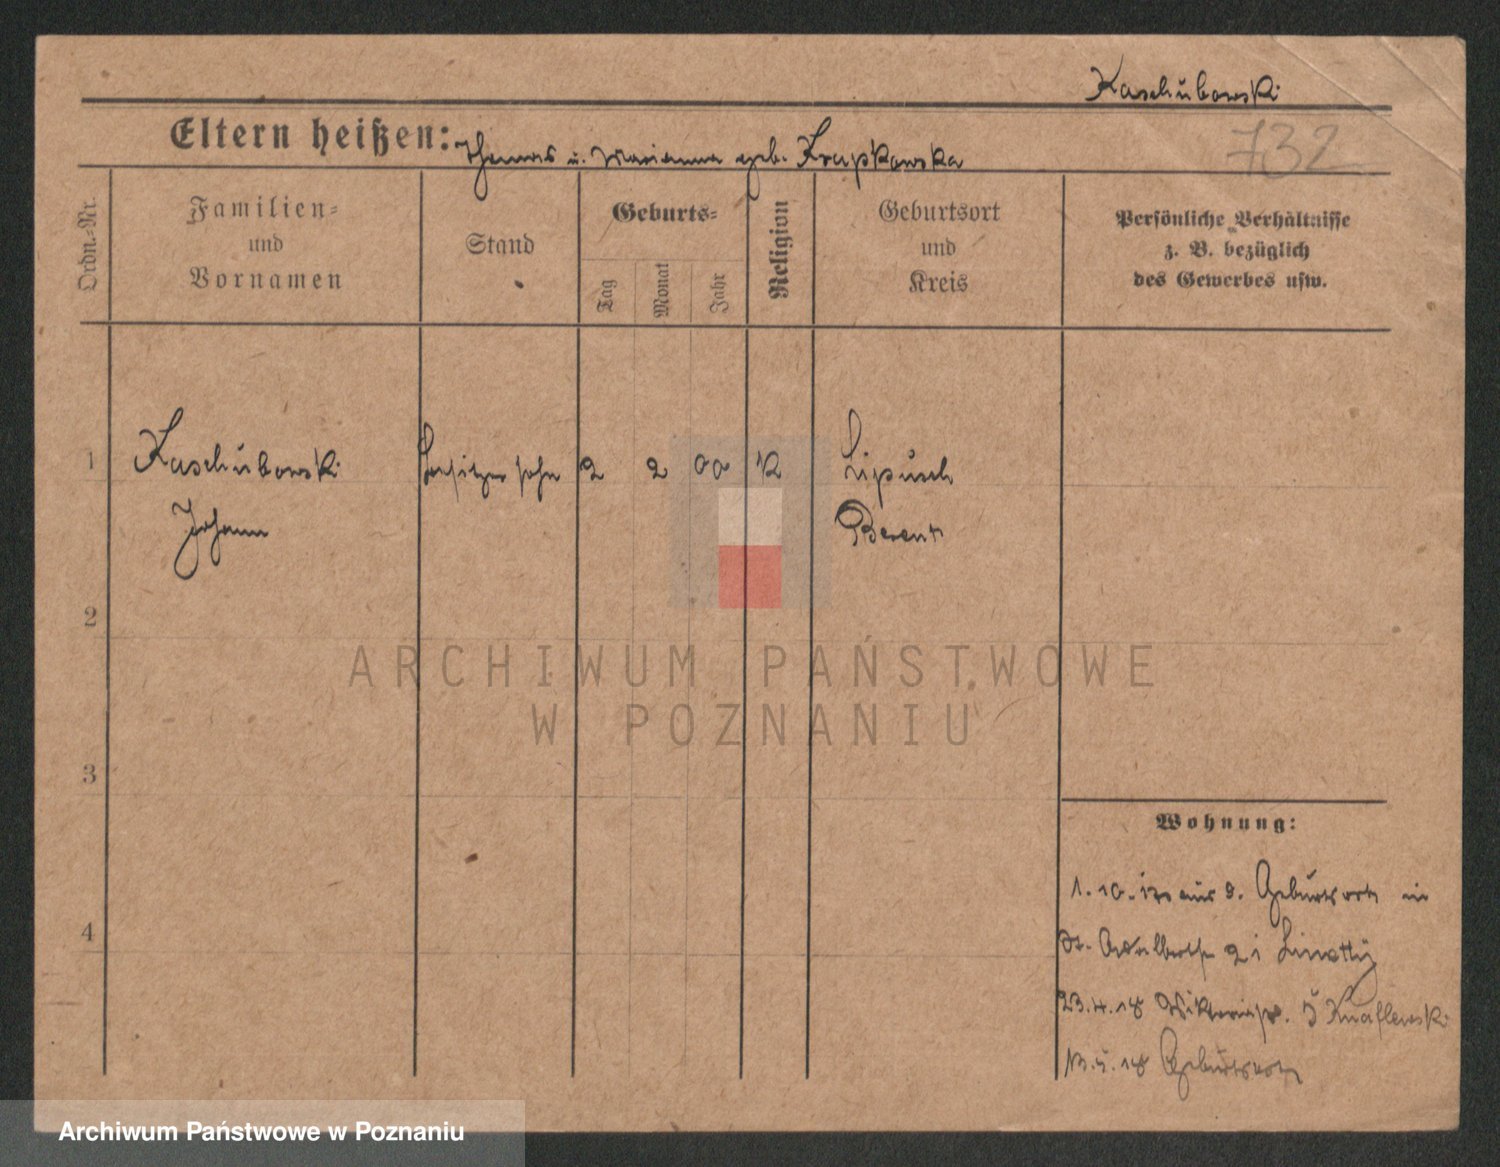 Kaschubowski
Eltern heißen: Thomas u. Marianna geb. Krupkowska
732
Ordn.-Nr.
Familien-
und
Vornamen
Stand
Geburts-
Tag
Monat
Jahr
Religion
Geburtsort
und
Kreis
Persönliche Verhältnisse
z. B. bezüglich
des Gewerbes usw.
1 Kaschubowski Besitzersohn 2 2 00 K Lipusch
Johann Berent
2
ARCHIWUM PAŃSTWOWE
W POZNANIU
3
Wohnung:
1. 10. aus s. Geburtsort in
St. Adalbertstr 21 Linetty
4
23.4.18 Viktoriastr. 5 Knaflewski
13.5.18 Geburtsort
Archiwum Państwowe w Poznaniu